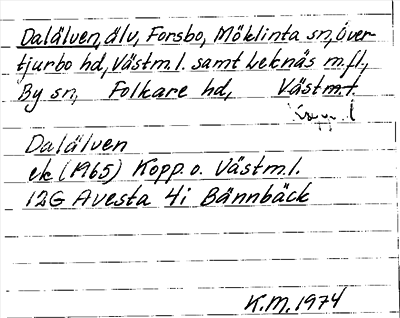 Dalälven, älv, Forsbo, Möklinta sn, Över-
tjurbo hd, Västm.l. samt Leknäs m.fl,
By sn, Folkare hd, Västm.l.
Kopp. l
Dalälven
ek (1965) Kopp. o. Västm.l.
12G Avesta 4i Bännbäck
K.M. 1974